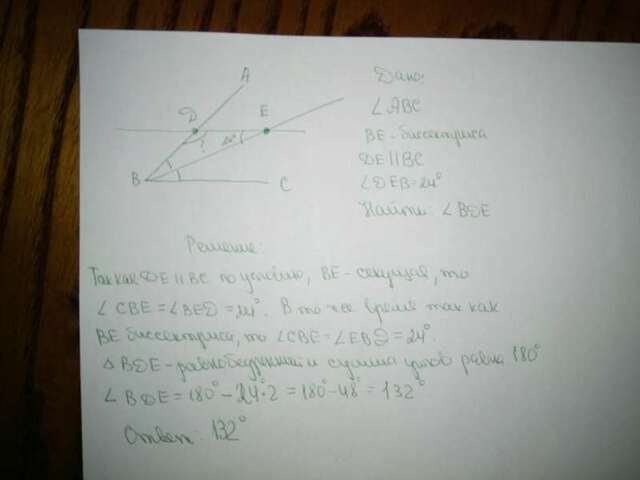 A
D E
? 24°
B C
Дано:
∠ABC
BE - биссектриса
DE||BC
∠DEB=24°
Найти: ∠BDE
Решение:
Так как DE||BC по условию, BE - секущая, то
∠CBE=∠BED=24°. В то же время так как
BE биссектриса, то ∠CBE=∠EBD=24°.
△BDE - равнобедренный и сумма углов равна 180°
∠BDE=180°-24°·2=180°-48°=132°
Ответ: 132°